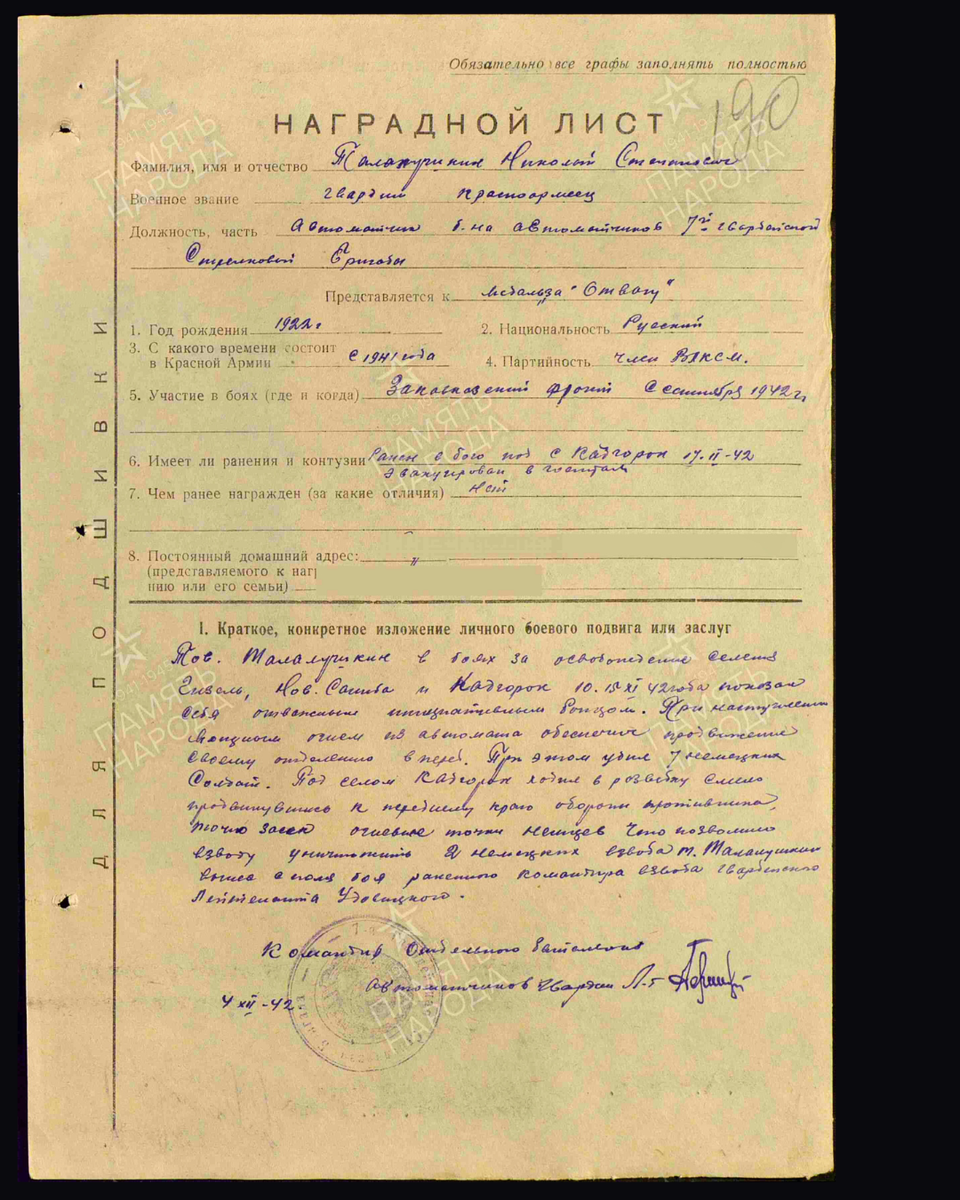 Обязательно все графы заполнять полностью
190
НАГРАДНОЙ ЛИСТ
Фамилия, имя и отчество Талалучкин Николай Степанович
Военное звание гвардии красноармеец
Должность, часть Автоматчик б-на автоматчиков 7ой гвардейской
Стрелковой Бригады
Представляется к медаль за "Отвагу"
1. Год рождения 1922 г
2. Национальность Русский
3. С какого времени состоит
в Красной Армии с 1941 года
4. Партийность член ВЛКСМ.
5. Участие в боях (где и когда) Закавказский фронт с сентября 1942 г.
6. Имеет ли ранения и контузии Ранен в бою под с Кадгорон 17.II-42
эвакуирован в госпиталь
7. Чем ранее награжден (за какие отличия) нет
8. Постоянный домашний адрес:
(представляемого к наг
нию или его семьи)
ДЛЯ ПОДШИВКИ
I. Краткое, конкретное изложение личного боевого подвига или заслуг
Тов. Талалучкин в боях за освобождение селений
Гизель, Нов. Саниба и Кадгорон 10.15 XI 42 года показал
себя отважным инициативным бойцом. При наступлении
мощным огнем из автомата обеспечил продвижение
своему отделению вперед. При этом убил 7 немецких
Солдат. Под селом Кадгорон ходил в разведку смело
продвинувшись к переднему краю обороны противника,
точно засек огневые точки немцев что позволило
взводу уничтожить 2 немецких взвода т. Талалушкин
вынес с поля боя раненого командира взвода гвардейского
Лейтенанта Удовицкого.
Командир Отдельного Батальона
Автоматчиков Гвардии Л-т
4 XII-42
ПАМЯТЬ
НАРОДА